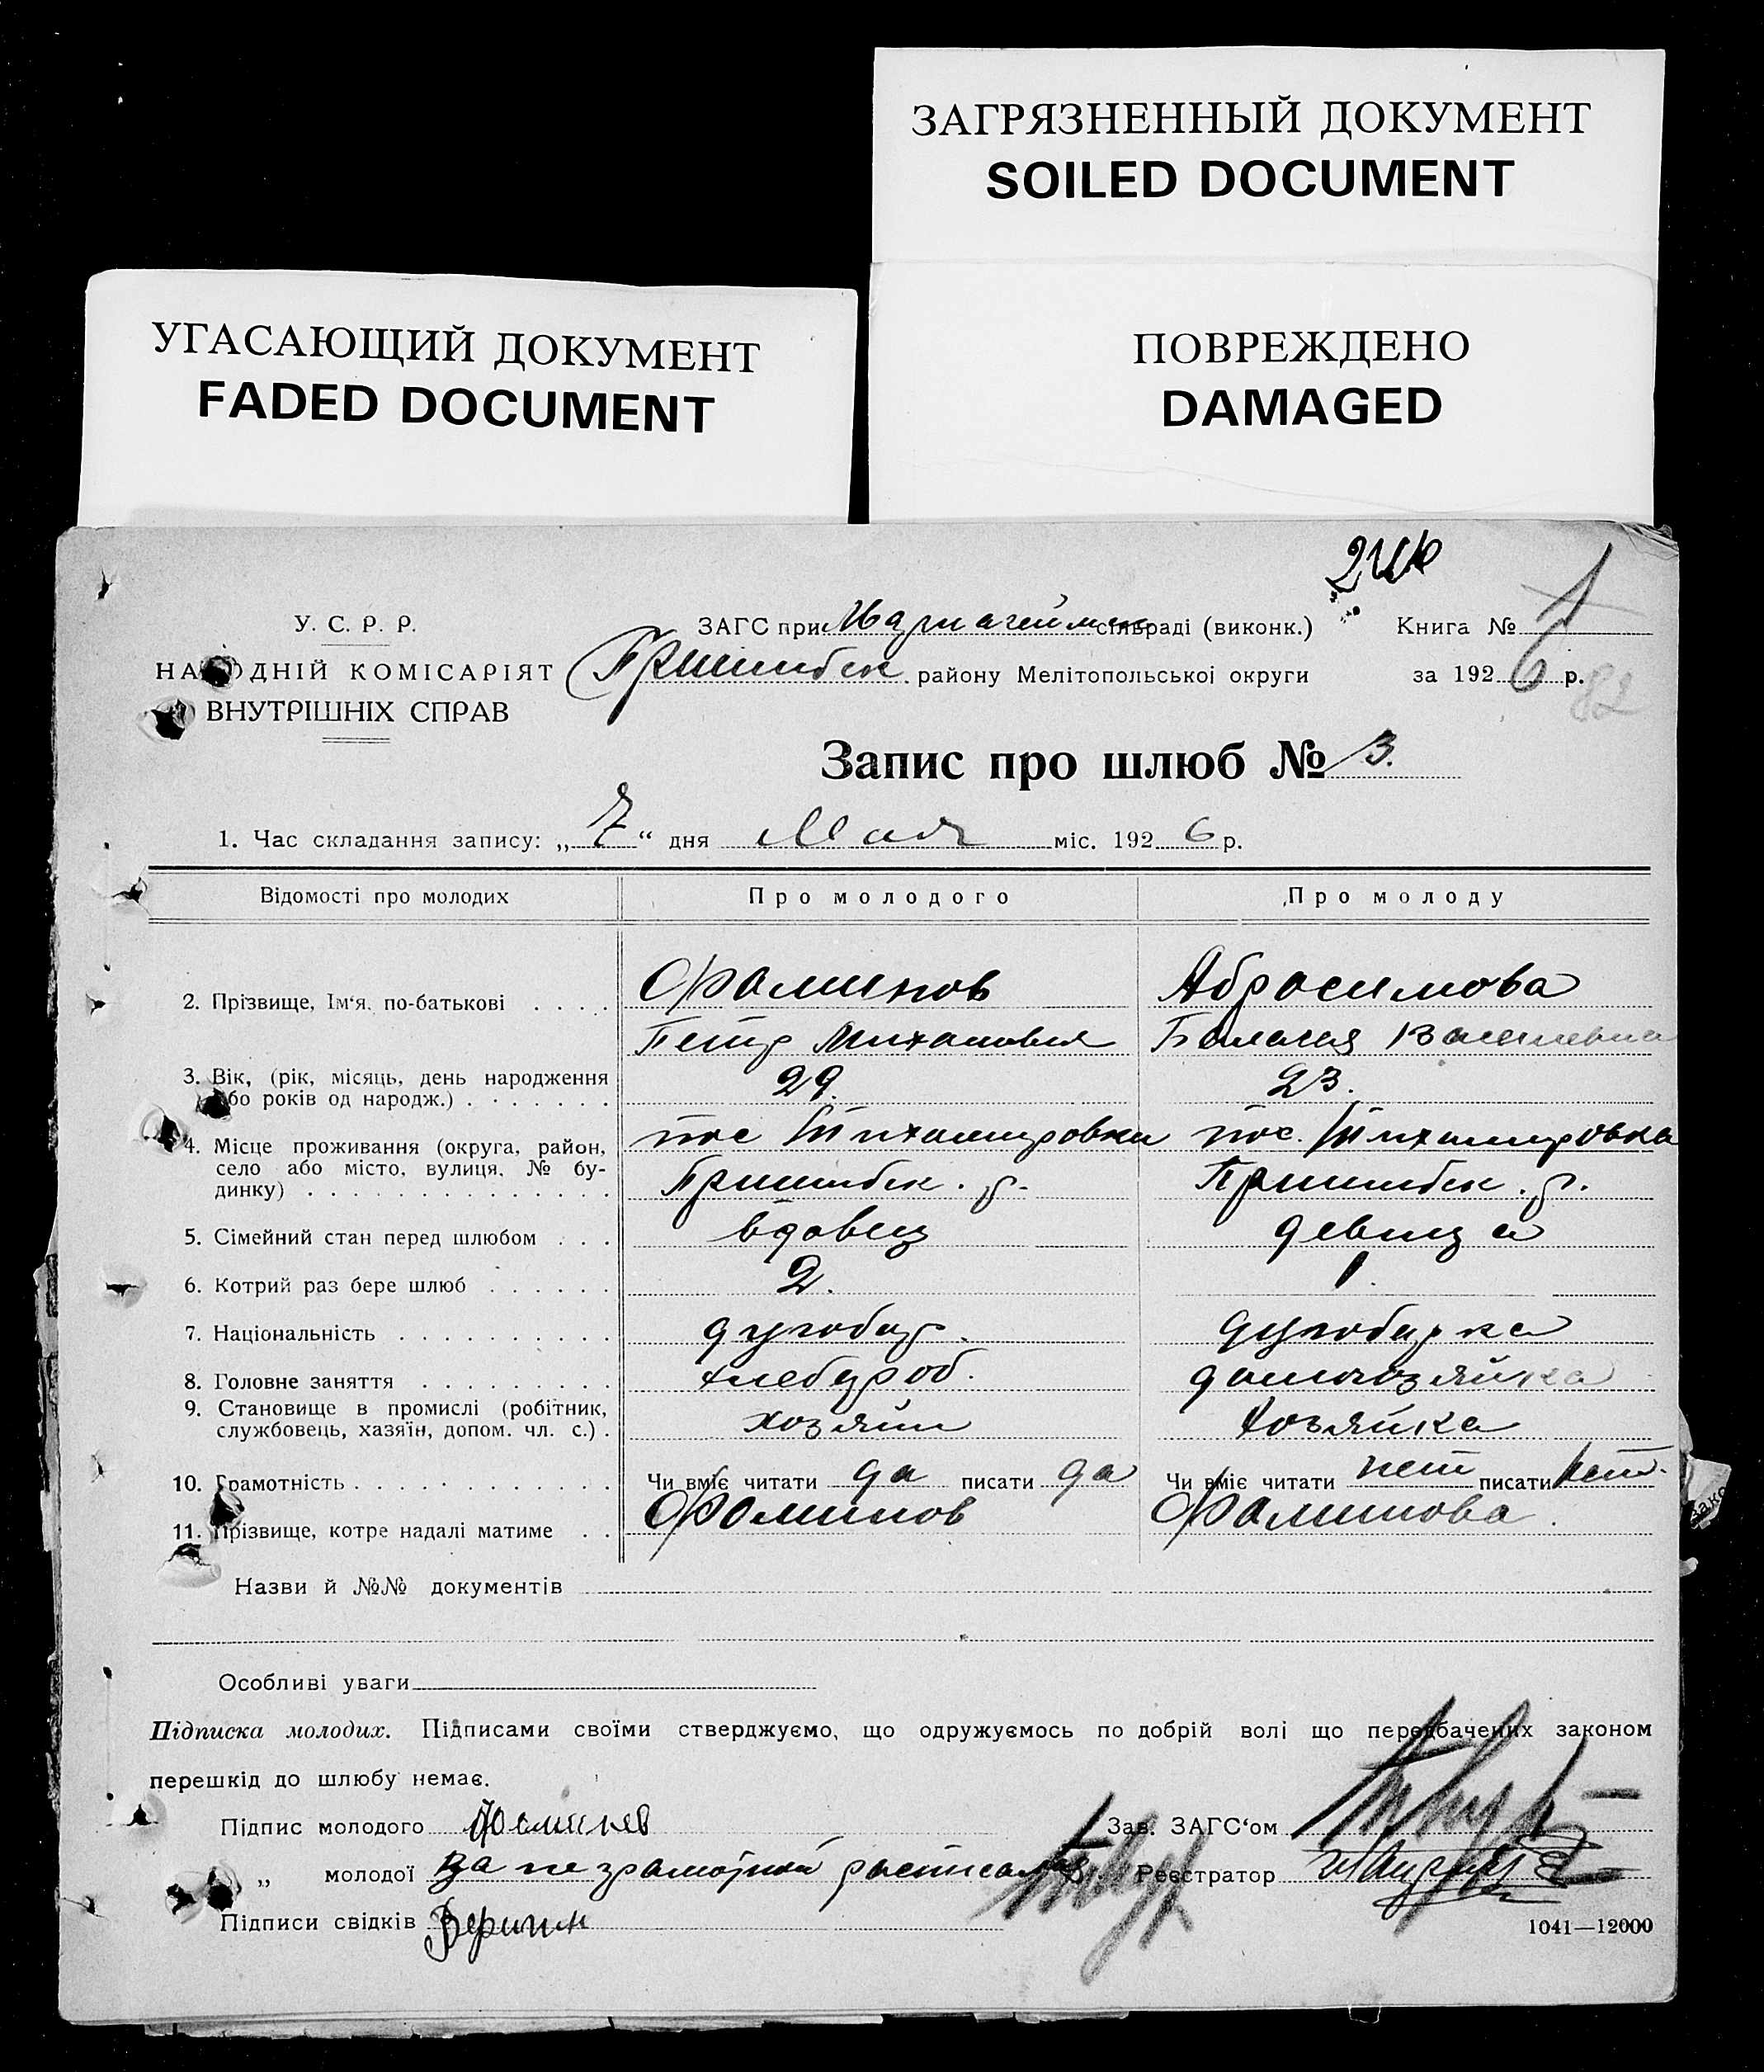 ЗАГРЯЗНЕННЫЙ ДОКУМЕНТ
SOILED DOCUMENT
УГАСАЮЩИЙ ДОКУМЕНТ
FADED DOCUMENT
ПОВРЕЖДЕНО
DAMAGED
У. С. Р. Р.
НАРОДНІЙ КОМІСАРІЯТ
ВНУТРІШНІХ СПРАВ
ЗАГС при сільраді (виконк.)
Пришибск району Мелітопольської округи
Книга № 1
за 1926 р.
82
Запис про шлюб № 3.
1. Час складання запису: „7“ дня Мая міс. 1926 р.
Відомості про молодих Про молодого Про молоду
2. Прізвище, Ім'я, по-батькові Фоминов Абросимова
Петр Пелагея Васильевна
3. Вік, (рік, місяць, день народження 29. 23.
або років од народж.)
4. Місце проживання (округа, район, пос пос.
село або місто, вулиця, № бу- Пришибск. р. Пришибск. р.
динку)
5. Сімейний стан перед шлюбом вдовец девица
6. Котрий раз бере шлюб 2. 1.
7. Національність духобор. духоборка
8. Головне заняття хлебороб. домохозяйка
9. Становище в промислі (робітник,
службовець, хазяїн, допом. чл. с.) хозяин хозяйка
10. Грамотність Чи вміє читати да писати да Чи вміє читати нет писати нет.
11. Прізвище, котре надалі матиме Фоминов Фоминова.
Назви й №№ документів
Особливі уваги
Підписка молодих. Підписами своїми стверджуємо, що одружуємось по добрій волі що передбачених законом
перешкід до шлюбу немає.
Підпис молодого Фоминов Зав. ЗАГС'ом
„ молодої За неграмотной Реєстратор
Підписи свідків
1041—12000